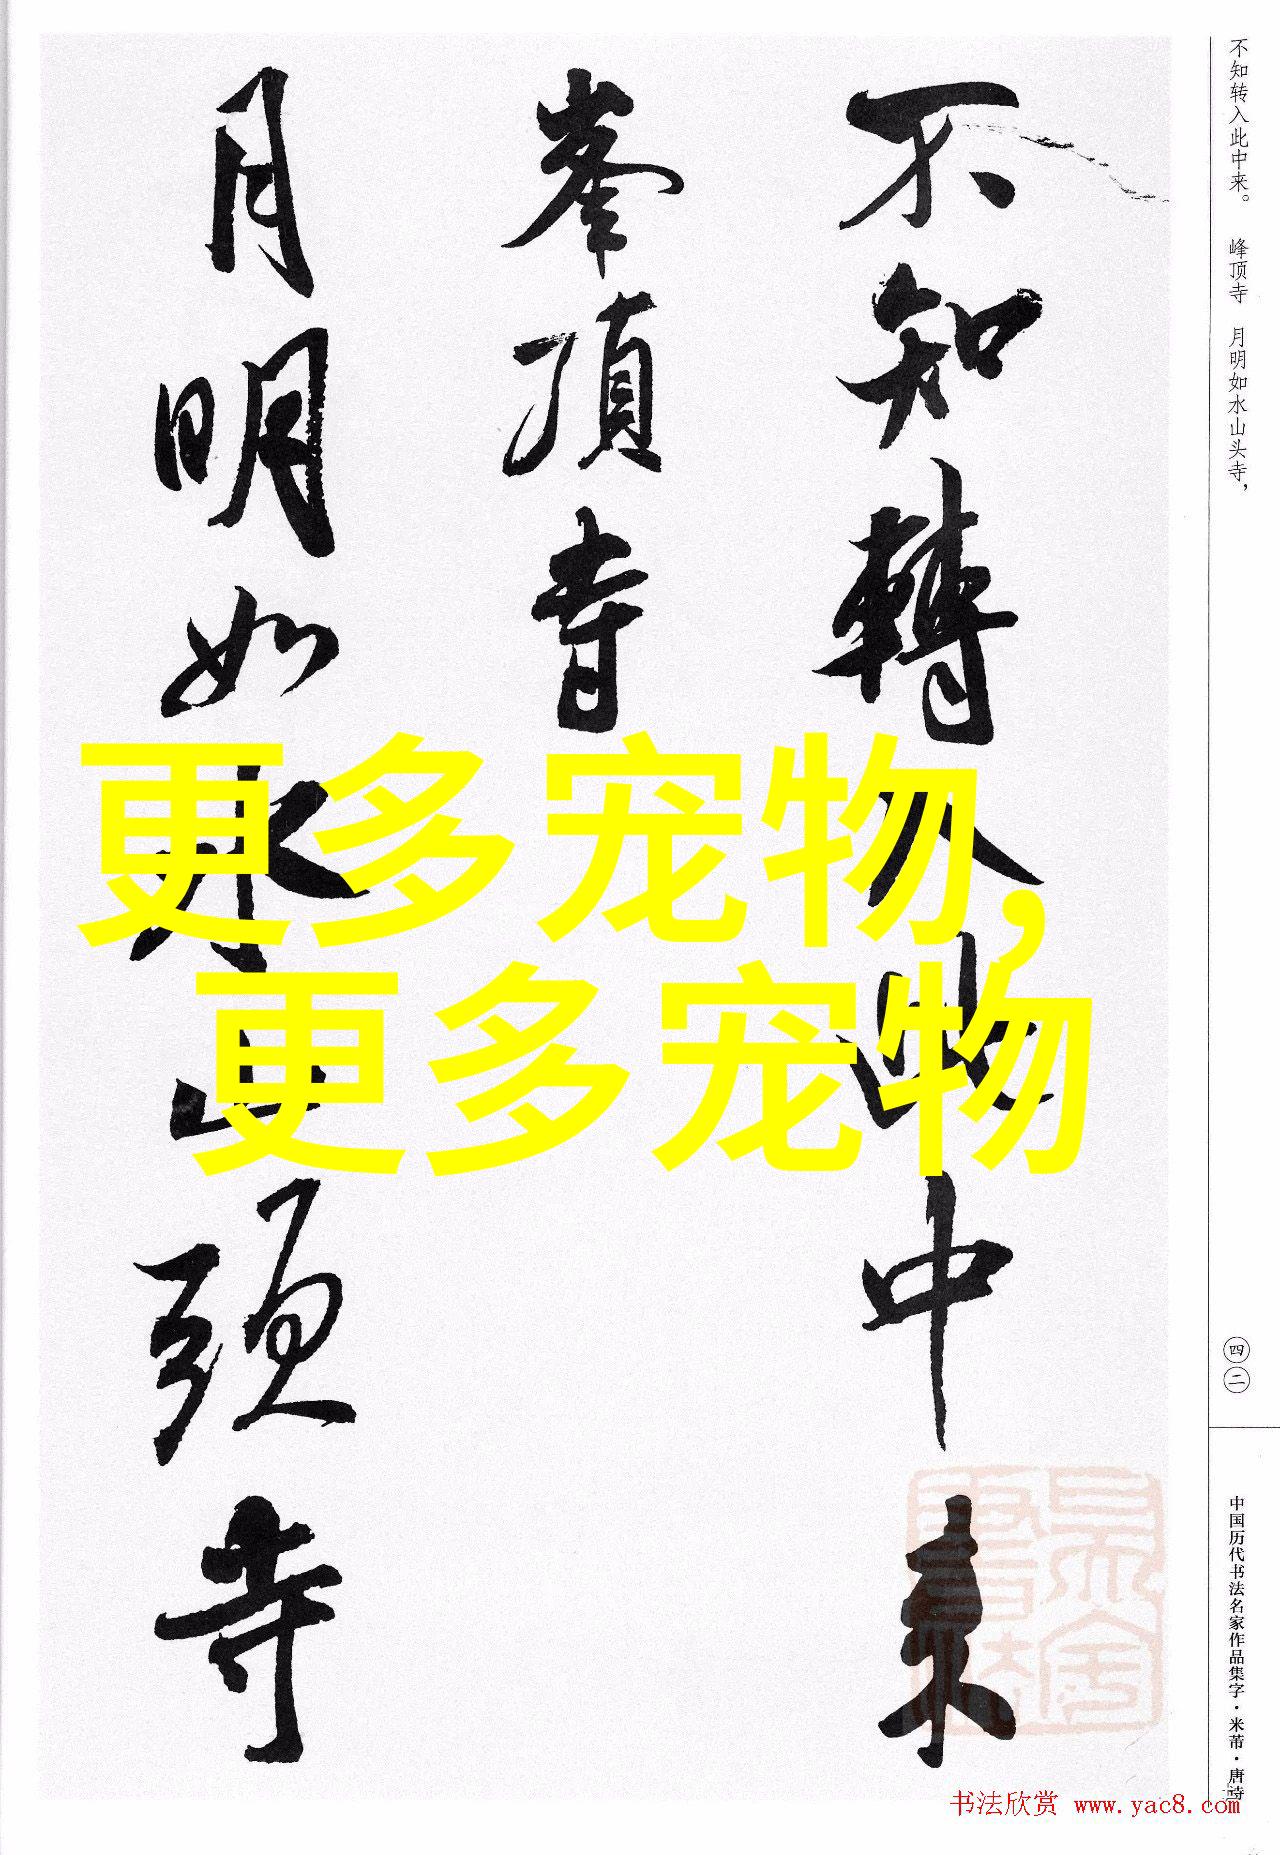 不知转入此中来。 峰顶寺 月明如水山头寺，
不知轉入此中来
峯頂寺
月明如水山頭寺
更多宠物,
更多宠物
四二
中国历代书法名家作品集字·米芾·唐诗
书法欣赏 www.yac8.com